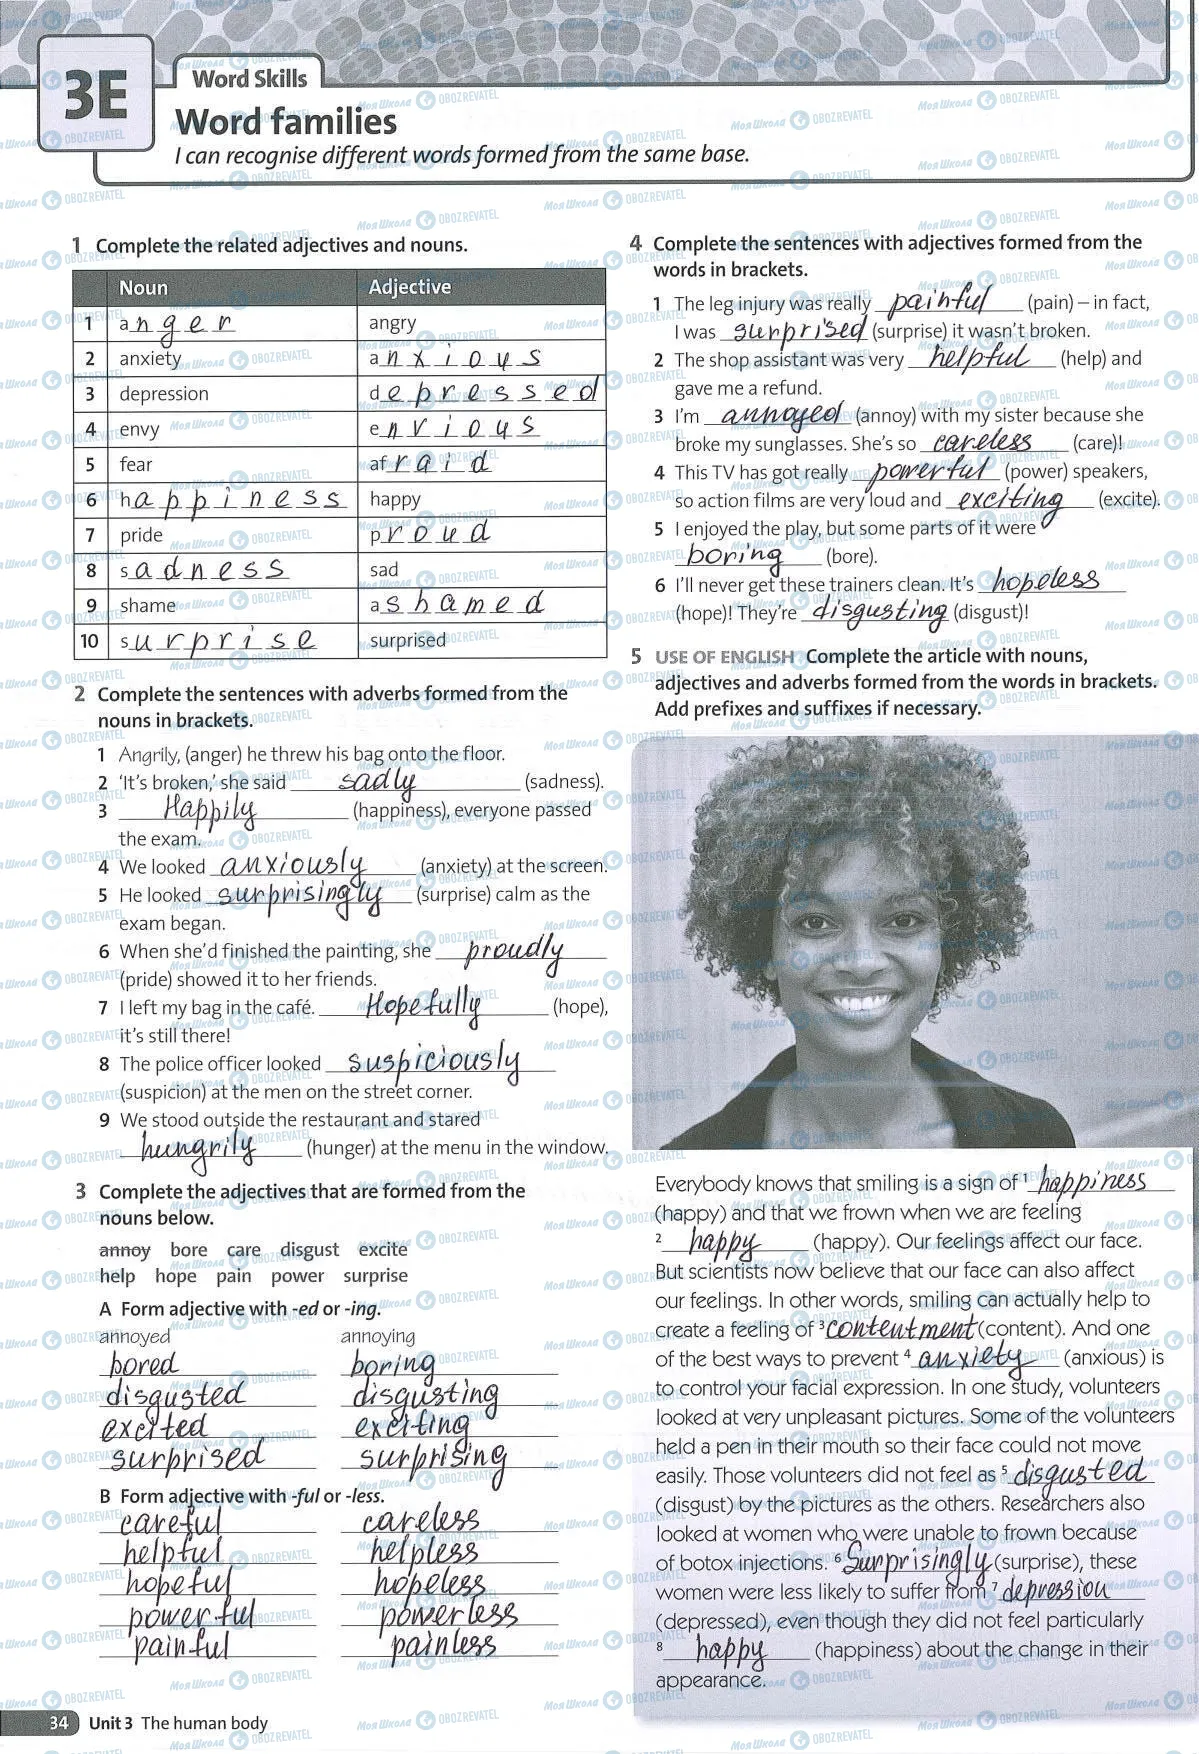 3E
Word Skills
Word families
I can recognise different words formed from the same base.
1 Complete the related adjectives and nouns.
Noun Adjective
1 anger angry
2 anxiety anxious
3 depression depressed
4 envy envious
5 fear afraid
6 happiness happy
7 pride proud
8 sadness sad
9 shame ashamed
10 surprise surprised
2 Complete the sentences with adverbs formed from the
nouns in brackets.
1 Angrily, (anger) he threw his bag onto the floor.
2 'It's broken,' she said sadly (sadness).
3 Happily (happiness), everyone passed
the exam.
4 We looked anxiously (anxiety) at the screen.
5 He looked surprisingly (surprise) calm as the
exam began.
6 When she'd finished the painting, she proudly
(pride) showed it to her friends.
7 I left my bag in the café. Hopefully (hope),
it's still there!
8 The police officer looked suspiciously
(suspicion) at the men on the street corner.
9 We stood outside the restaurant and stared
hungrily (hunger) at the menu in the window.
3 Complete the adjectives that are formed from the
nouns below.
annoy bore care disgust excite
help hope pain power surprise
A Form adjective with -ed or -ing.
annoyed annoying
bored boring
disgusted disgusting
excited exciting
surprised surprising
B Form adjective with -ful or -less.
careful careless
helpful helpless
hopeful hopeless
powerful powerless
painful painless
34 Unit 3 The human body
4 Complete the sentences with adjectives formed from the
words in brackets.
1 The leg injury was really painful (pain) – in fact,
I was surprised (surprise) it wasn't broken.
2 The shop assistant was very helpful (help) and
gave me a refund.
3 I'm annoyed (annoy) with my sister because she
broke my sunglasses. She's so careless (care)!
4 This TV has got really powerful (power) speakers,
so action films are very loud and exciting (excite).
5 I enjoyed the play, but some parts of it were
boring (bore).
6 I'll never get these trainers clean. It's hopeless
(hope)! They're disgusting (disgust)!
5 USE OF ENGLISH Complete the article with nouns,
adjectives and adverbs formed from the words in brackets.
Add prefixes and suffixes if necessary.
Everybody knows that smiling is a sign of 1 happiness
(happy) and that we frown when we are feeling
2 happy (happy). Our feelings affect our face.
But scientists now believe that our face can also affect
our feelings. In other words, smiling can actually help to
create a feeling of 3 contentment (content). And one
of the best ways to prevent 4 anxiety (anxious) is
to control your facial expression. In one study, volunteers
looked at very unpleasant pictures. Some of the volunteers
held a pen in their mouth so their face could not move
easily. Those volunteers did not feel as 5 disgusted
(disgust) by the pictures as the others. Researchers also
looked at women who were unable to frown because
of botox injections. 6 Surprisingly (surprise), these
women were less likely to suffer from 7 depression
(depressed), even though they did not feel particularly
8 happy (happiness) about the change in their
appearance.
Моя Школа OBOZREVATEL